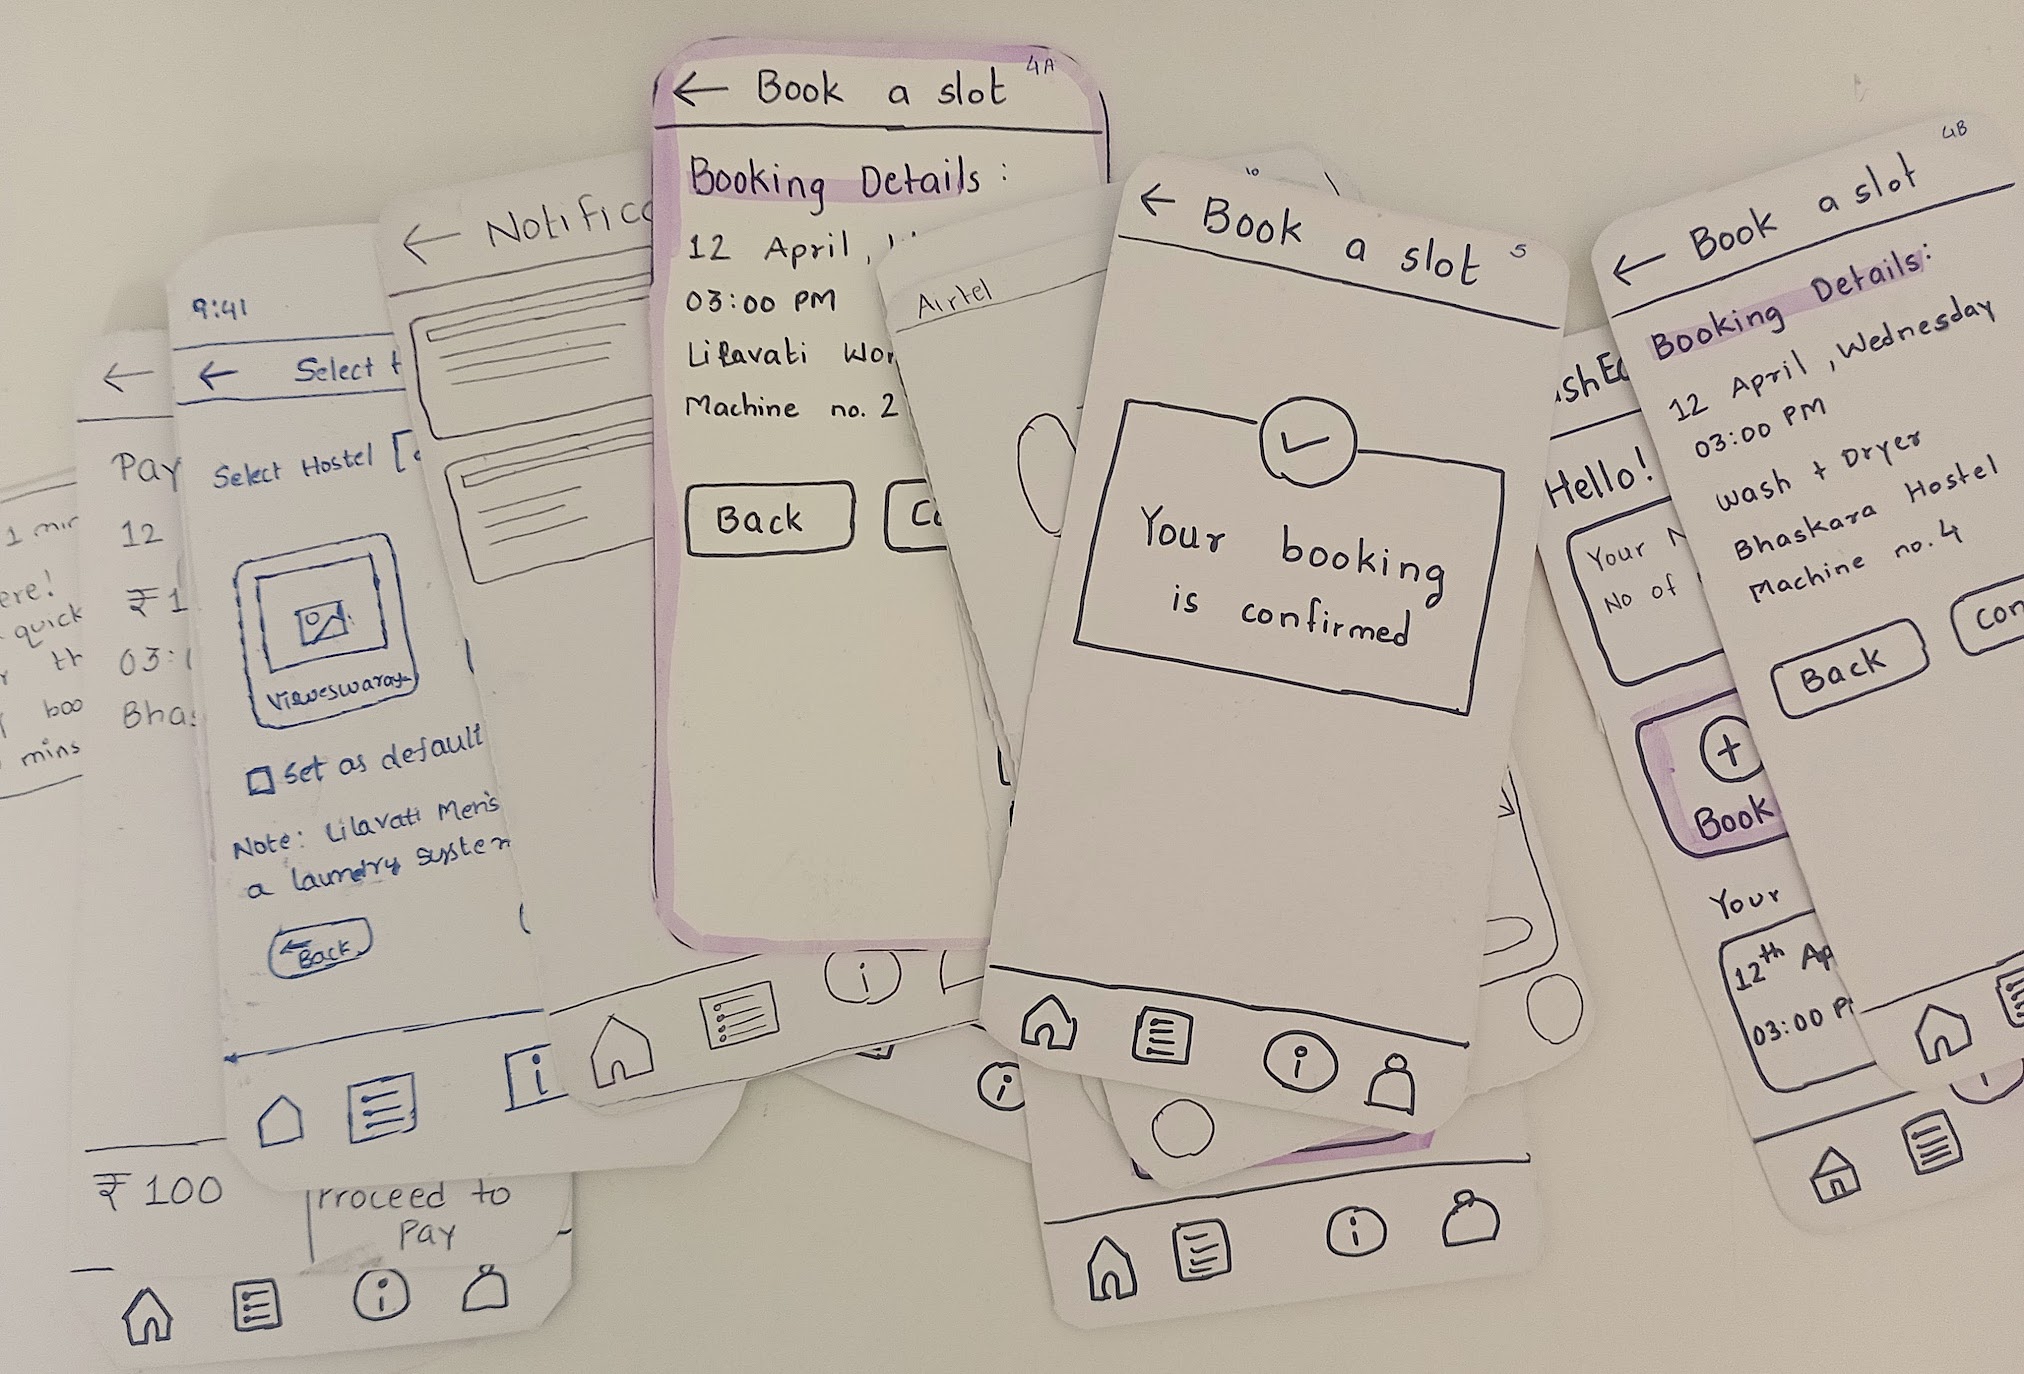 1 min
ere!
quick
th
boo
mins
Pay
12
₹1
03:
Bhas
₹100
Proceed to
Pay
9:41
Select
Select Hostel
Visweswaraya
Set as default
Note: Lilavati Men's
a laundry system
Back
Notific
4A
Book a slot
Booking Details:
12 April,
03:00 PM
Lilavati Wo
Machine no. 2
Back
Co
Airtel
10
Book a slot 5
Your booking
is confirmed
shEa
Hello!
Your N
No of
Book
Your
12th Ap
03:00 P
4B
Book a slot
Booking Details:
12 April, Wednesday
03:00 PM
Wash + Dryer
Bhaskara Hostel
Machine no. 4
Back
Con